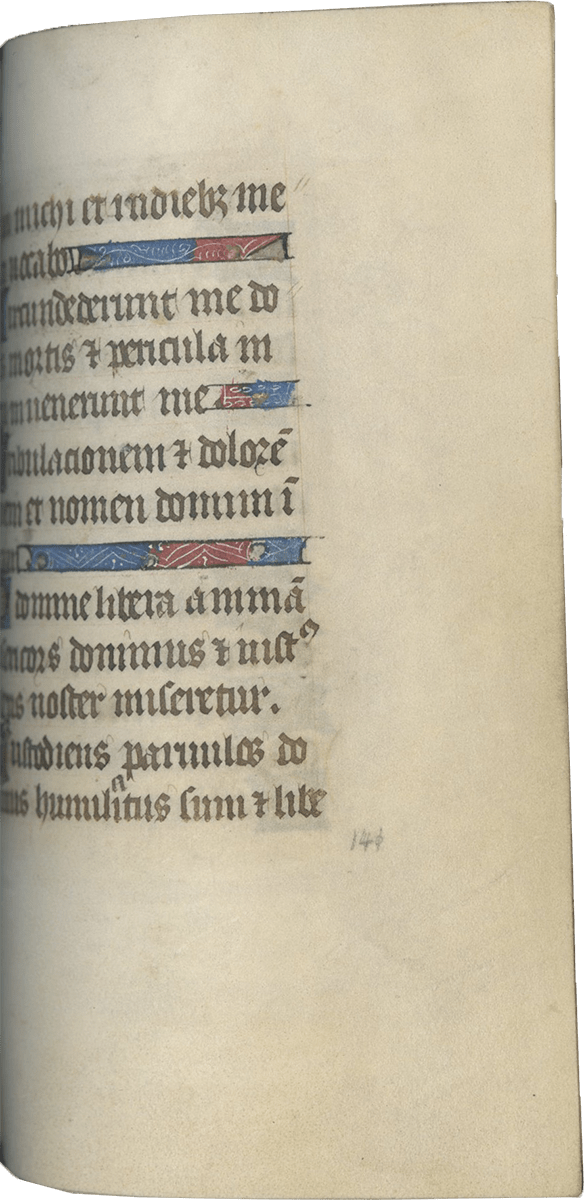 michi et in diebꝫ me
uocabo
circundederunt me do
mortis ⁊ pericula in
inuenerunt me
tribulacionem ⁊ dolorē
et nomen domini ī
domine libera animā
sericors dominus ⁊ iust⁹
deus noster miseretur.
Custodiens paruulos do
minus humiliatus sum ⁊ libe
141